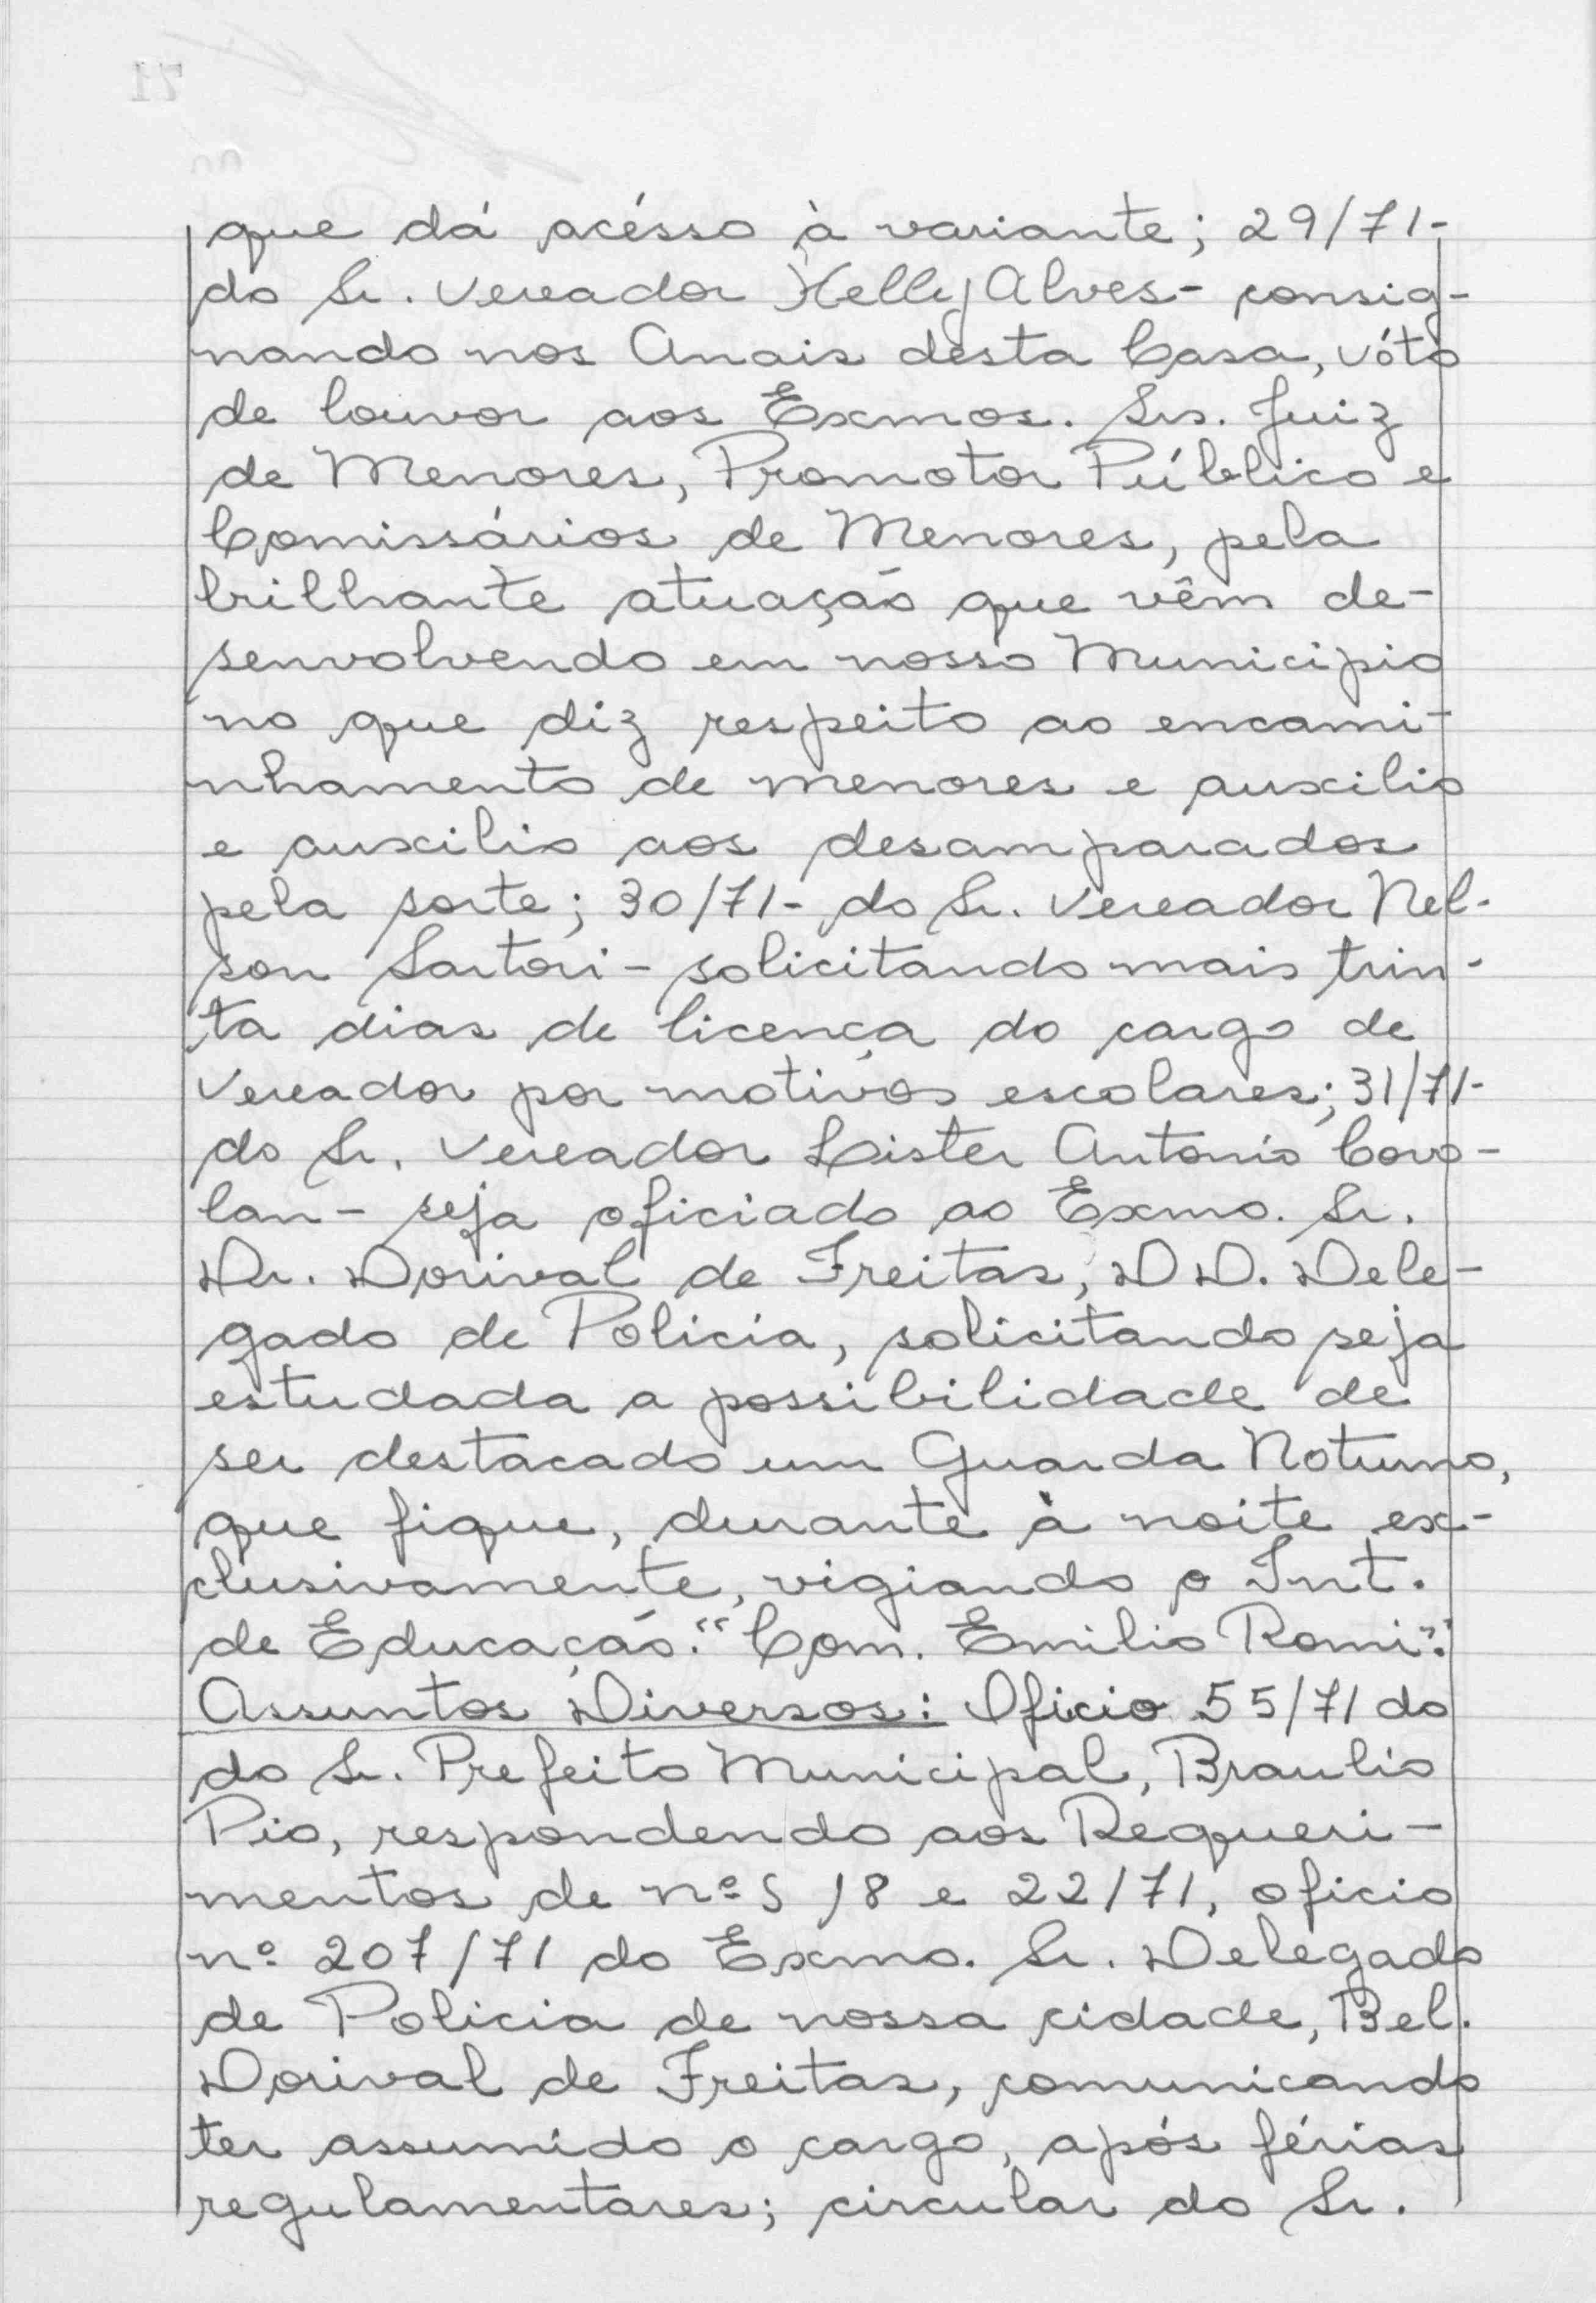 que dá acésso à variante; 29/71-
do Sr. Vereador Helly Alves - consig-
nando nos Anais desta Casa, vóto
de louvor aos Exmos. Srs. Juiz
de Menores, Promotor Público e
Comissários de Menores, pela
brilhante atuação que vêm de-
senvolvendo em nosso Municipio
no que diz respeito ao encami-
nhamento de menores e auxilio
e auxilio aos desamparados
pela sorte; 30/71- do Sr. Vereador Nel-
son Sartori - solicitando mais trin-
ta dias de licença do cargo de
Vereador por motivos escolares; 31/71-
do Sr. Vereador Lister Antonio Covo-
lan - seja oficiado ao Exmo. Sr.
Dr. Dorival de Freitas, DD. Dele-
gado de Policia, solicitando seja
estudada a possibilidade de
ser destacado um Guarda Noturno,
que fique, durante à noite ex-
clusivamente, vigiando o Int.
de Educação. "Com. Emilio Romi".
Assuntos Diversos: Oficio 55/71 do
do Sr. Prefeito Municipal, Braulio
Pio, respondendo aos Requeri-
mentos de nºs 18 e 22/71, oficio
nº 207/71 do Exmo. Sr. Delegado
de Policia de nossa cidade, Bel.
Dorival de Freitas, comunicando
ter assumido o cargo, após férias
regulamentares; circular do Sr.